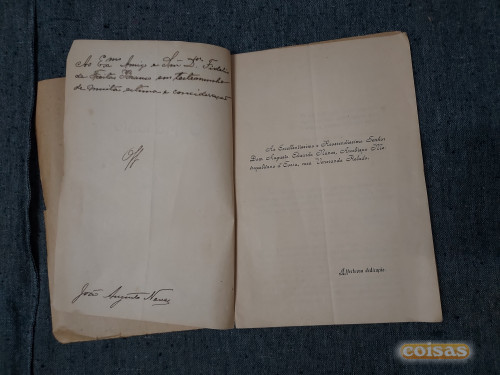 Ao Exmo Amigo e Snr Dr. Fidelio
de Freitas Branco em testemunho
de muita estima e consideração
Off
João Augusto Nunes
Ao Excellentissimo e Reverendissimo Senhor
Dom Augusto Eduardo Nunes, Arcebispo Me-
tropolitano d'Evora, meu Venerando Prelado:
coisas